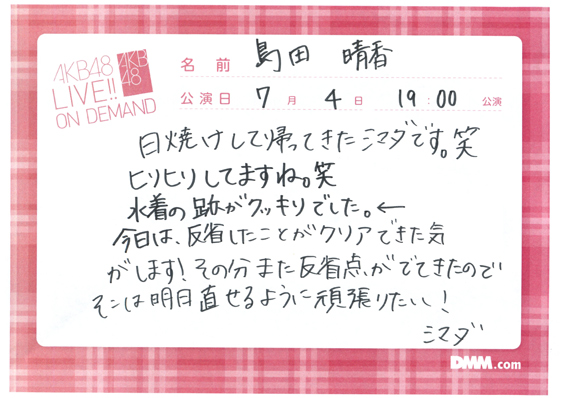 AKB48
LIVE!!
ON DEMAND
AKB
48
名前 島田 晴香
公演日 7月 4日 19:00 公演
日焼けして帰ってきたシマダです。笑
ヒリヒリしてますね。笑
水着の跡がクッキリでした。←
今日は、反省したことがクリアできた気
がします!その分また反省点がでてきたので
そこは明日直せるように頑張りたい!
シマダ
DMM.com